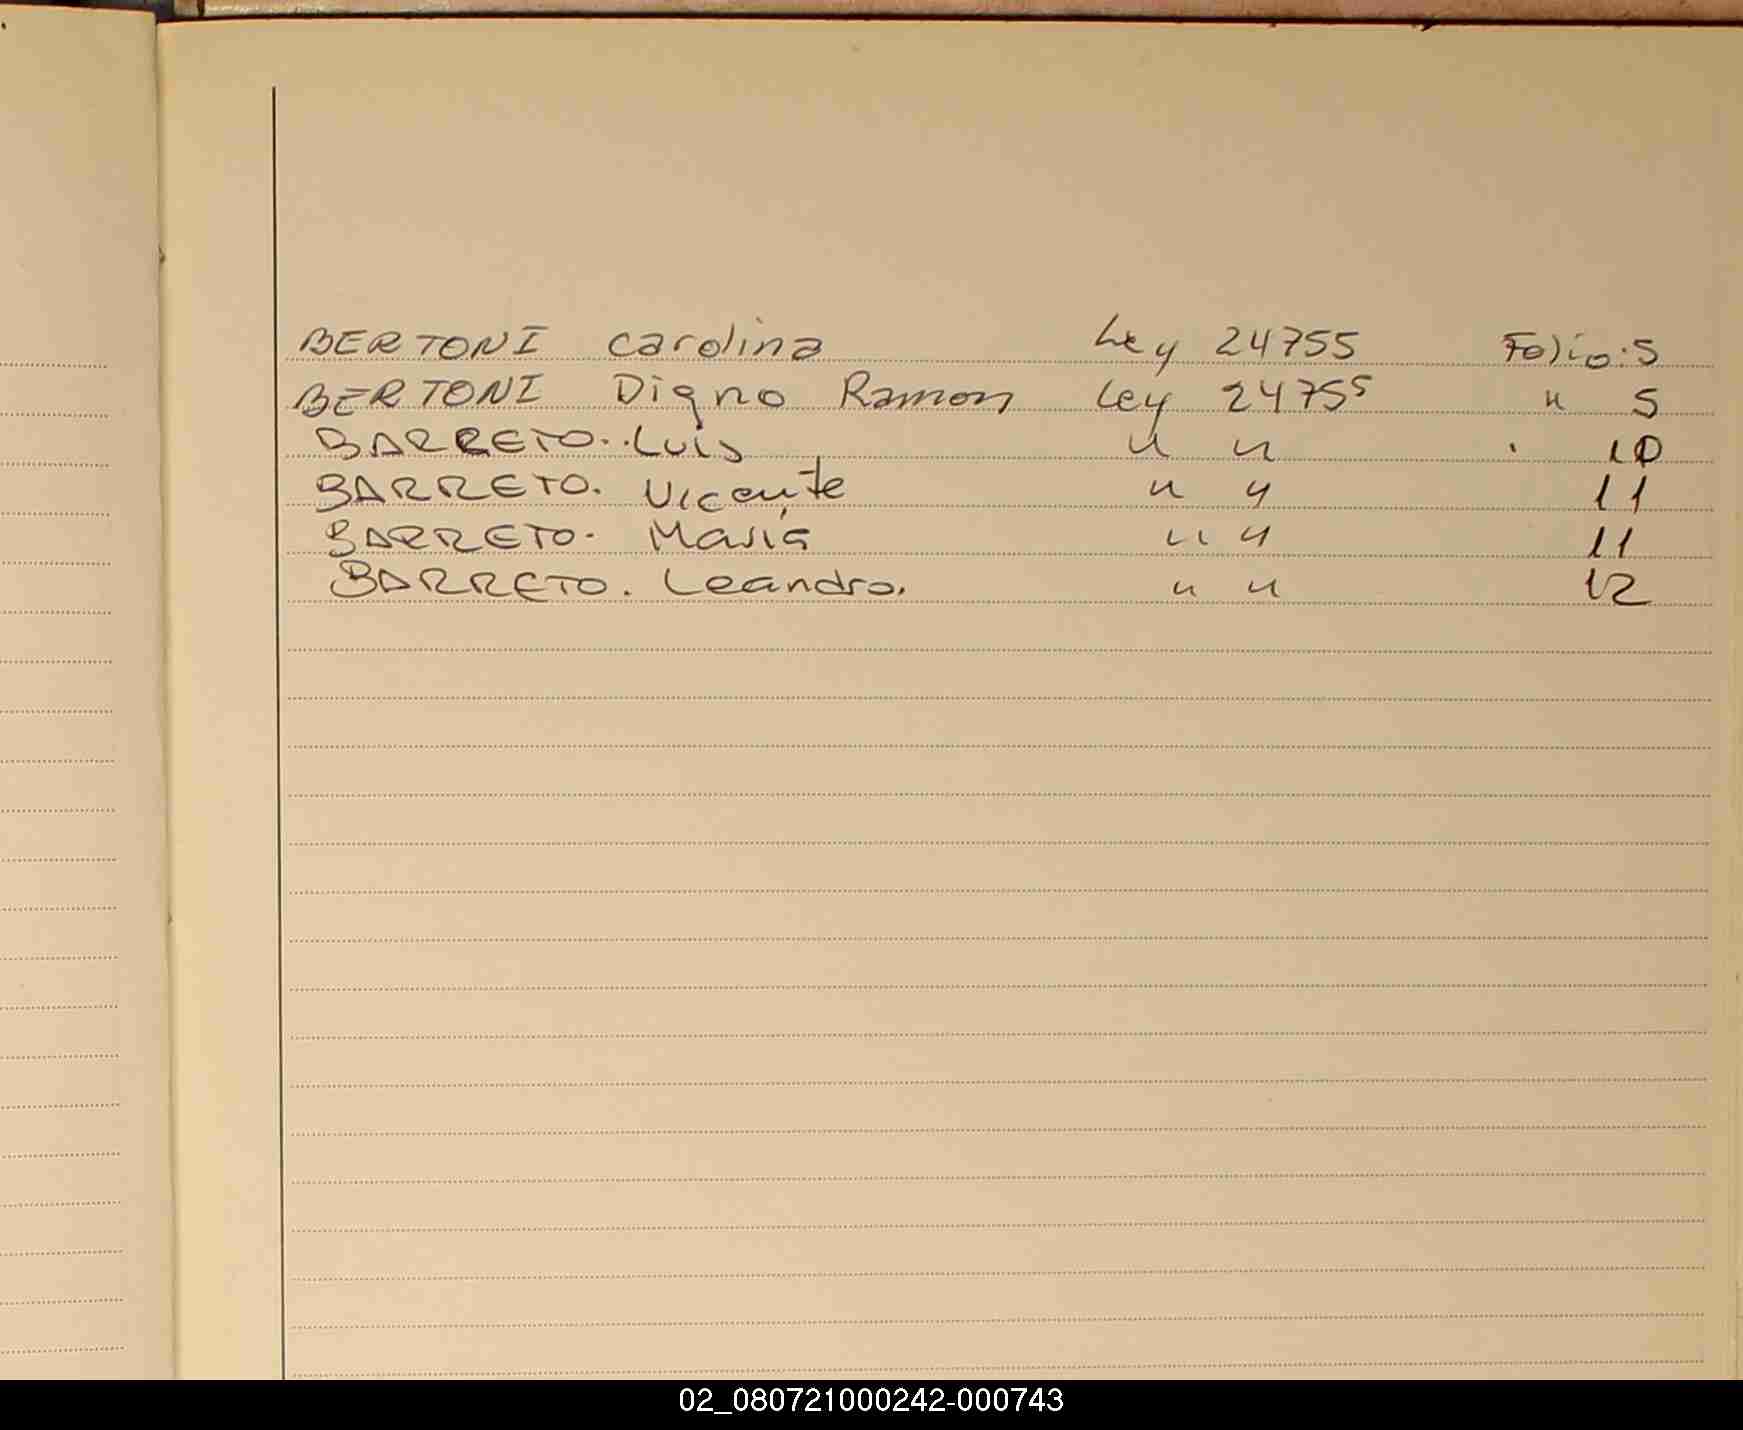 BERTONI Carolina Ley 24755 Folio: 5
BERTONI Digno Ramon Ley 24755 " 5
BARRETO. Luis " " " 10
BARRETO. Vicente " " 11
BARRETO. Maria " " 11
BARRETO. Leandro. " " 12
02_080721000242-000743